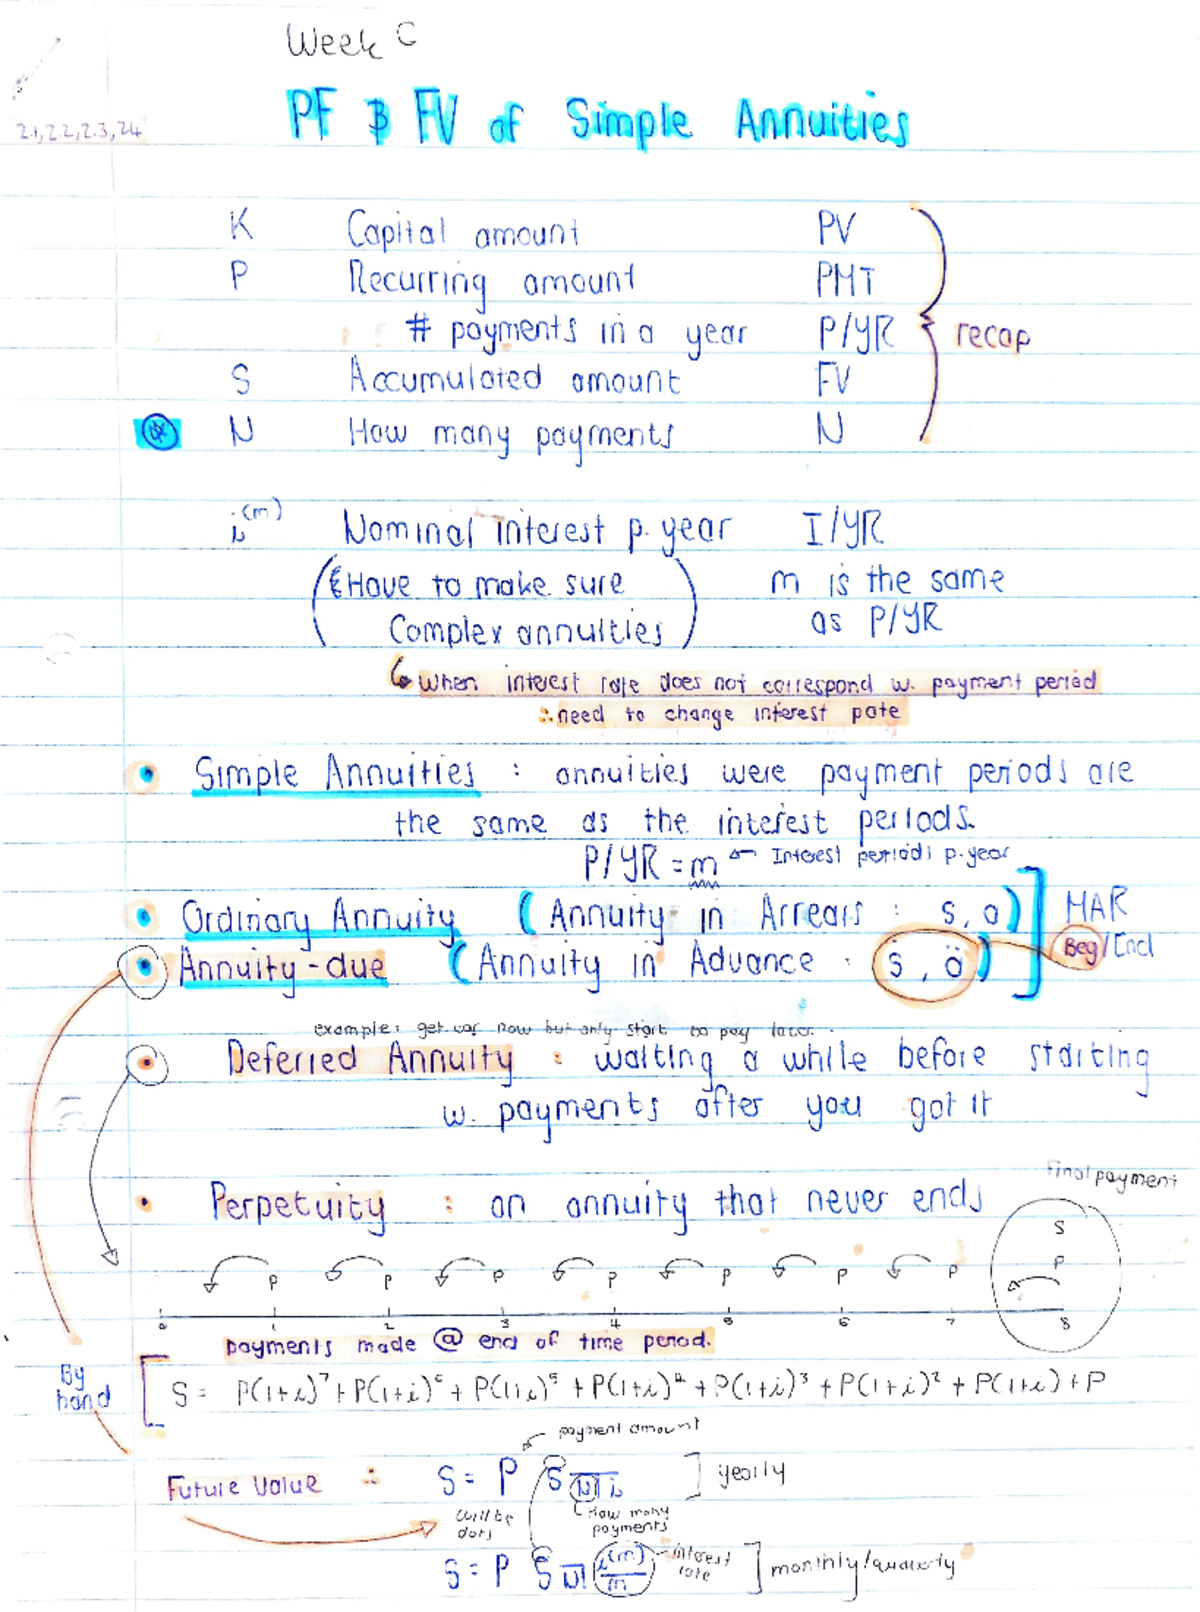 Week 6
2.1, 2.2, 2.3, 2.4
PF & FV of Simple Annuities
K Capital amount PV
P Recurring amount PMT
# payments in a year P/YR
recap
S Accumulated amount FV
N How many payments N
i^(m) Nominal interest p. year I/YR
(Have to make sure m is the same
Complex annuities) as P/YR
↳ When interest rate does not correspond w. payment period
∴ need to change interest rate
• Simple Annuities : annuities were payment periods are
the same as the interest periods.
P/YR = m ← Interest periods p. year
• Ordinary Annuity (Annuity in Arrears : s, a) MAR
• Annuity-due (Annuity in Advance : s̈, ä) Beg/End
example: get car now but only start to pay later.
• Deferred Annuity : waiting a while before starting
w. payments after you got it
Final payment
• Perpetuity : an annuity that never ends
S
P P P P P P P P
0 1 2 3 4 5 6 7 8
payments made @ end of time period.
By hand
S = P(1+i)^7 + P(1+i)^6 + P(1+i)^5 + P(1+i)^4 + P(1+i)^3 + P(1+i)^2 + P(1+i) + P
payment amount
Future Value ∴ S = P S N┐i ] yearly
will be dots
How many payments
S = P S N┐ i^(m)/m interest rate ] monthly/quarterly